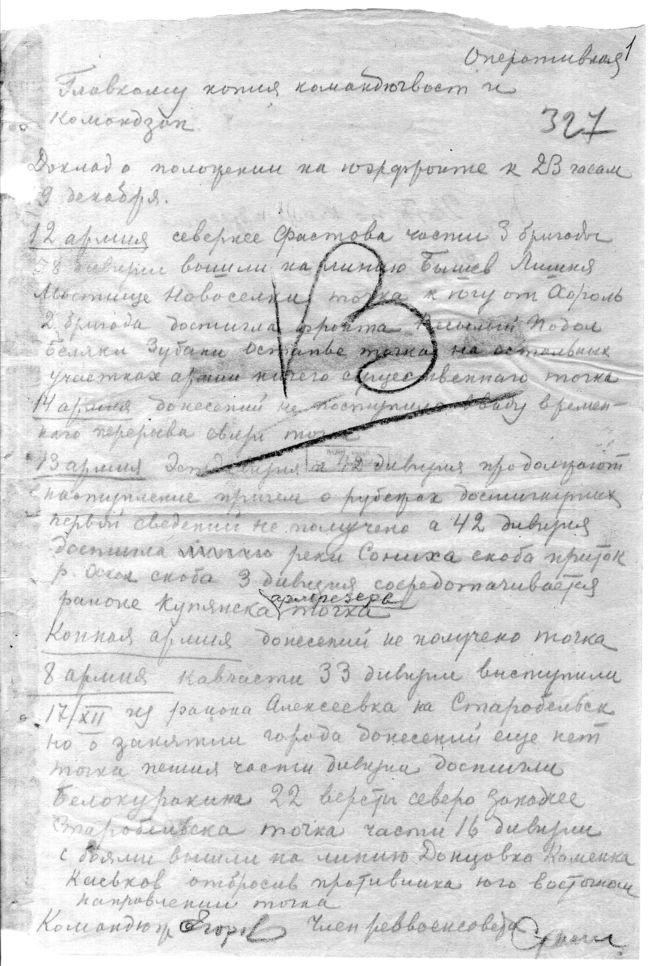 Оперативная 1
Главкому копия командюгвост и
Командзап
327
Доклад о положении на югфронте к 23 часам
9 декабря.
12 армия севернее Фастова части 3 бригады
58 дивизии вошли на линию Бышев Лишня
Мостище Новоселки точка к югу от Хороль
2 бригада достигла фронта Подол
Беляки Зубани Остапье точка на остальных
участках армии ничего существенного точка
14 армия донесений не поступило ввиду времен-
ного перерыва связи точка
13 армия дивизия и 42 дивизия продолжают
наступление причем о рубежах достигнутых
первой сведений не получено а 42 дивизия
достигла реки Сониха скоба приток
р. Оскол скоба 3 дивизия сосредотачивается
армрезерв
районе Купянска точка
Конная армия донесений не получено точка
8 армия кавчасти 33 дивизии выступили
17/XII из района Алексеевка на Старобельск
но о занятии города донесений еще нет
точка пешия части дивизии достигли
Белокуракина 22 версты северо западнее
Старобельска точка части 16 дивизии
с боями вышли на линию Донцовка Каменка
Каськов отбросив противника юго восточном
направлении точка
Командюж Егоров Член реввоенсовета